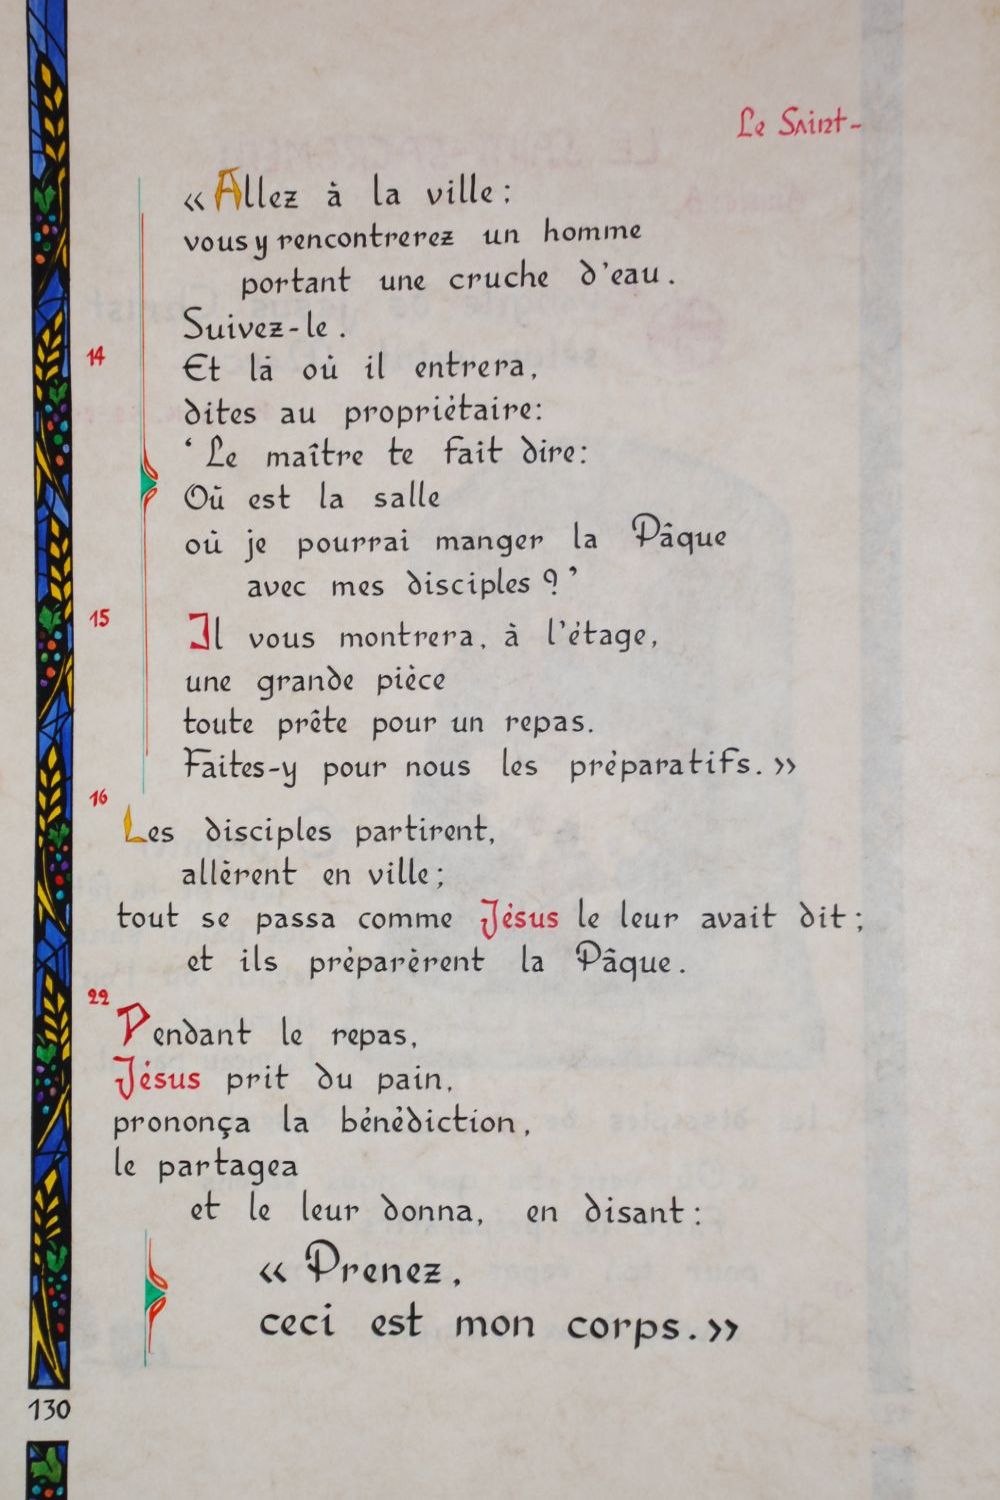 Le Saint-
«Allez à la ville:
vous y rencontrerez un homme
portant une cruche d'eau.
Suivez-le.
14
Et là où il entrera,
dites au propriétaire:
‘Le maître te fait dire:
Où est la salle
où je pourrai manger la Pâque
avec mes disciples?’
15
Il vous montrera, à l'étage,
une grande pièce
toute prête pour un repas.
Faites-y pour nous les préparatifs.»
16
Les disciples partirent,
allèrent en ville;
tout se passa comme Jésus le leur avait dit;
et ils préparèrent la Pâque.
22
Pendant le repas,
Jésus prit du pain,
prononça la bénédiction,
le partagea
et le leur donna, en disant:
«Prenez,
ceci est mon corps.»
130